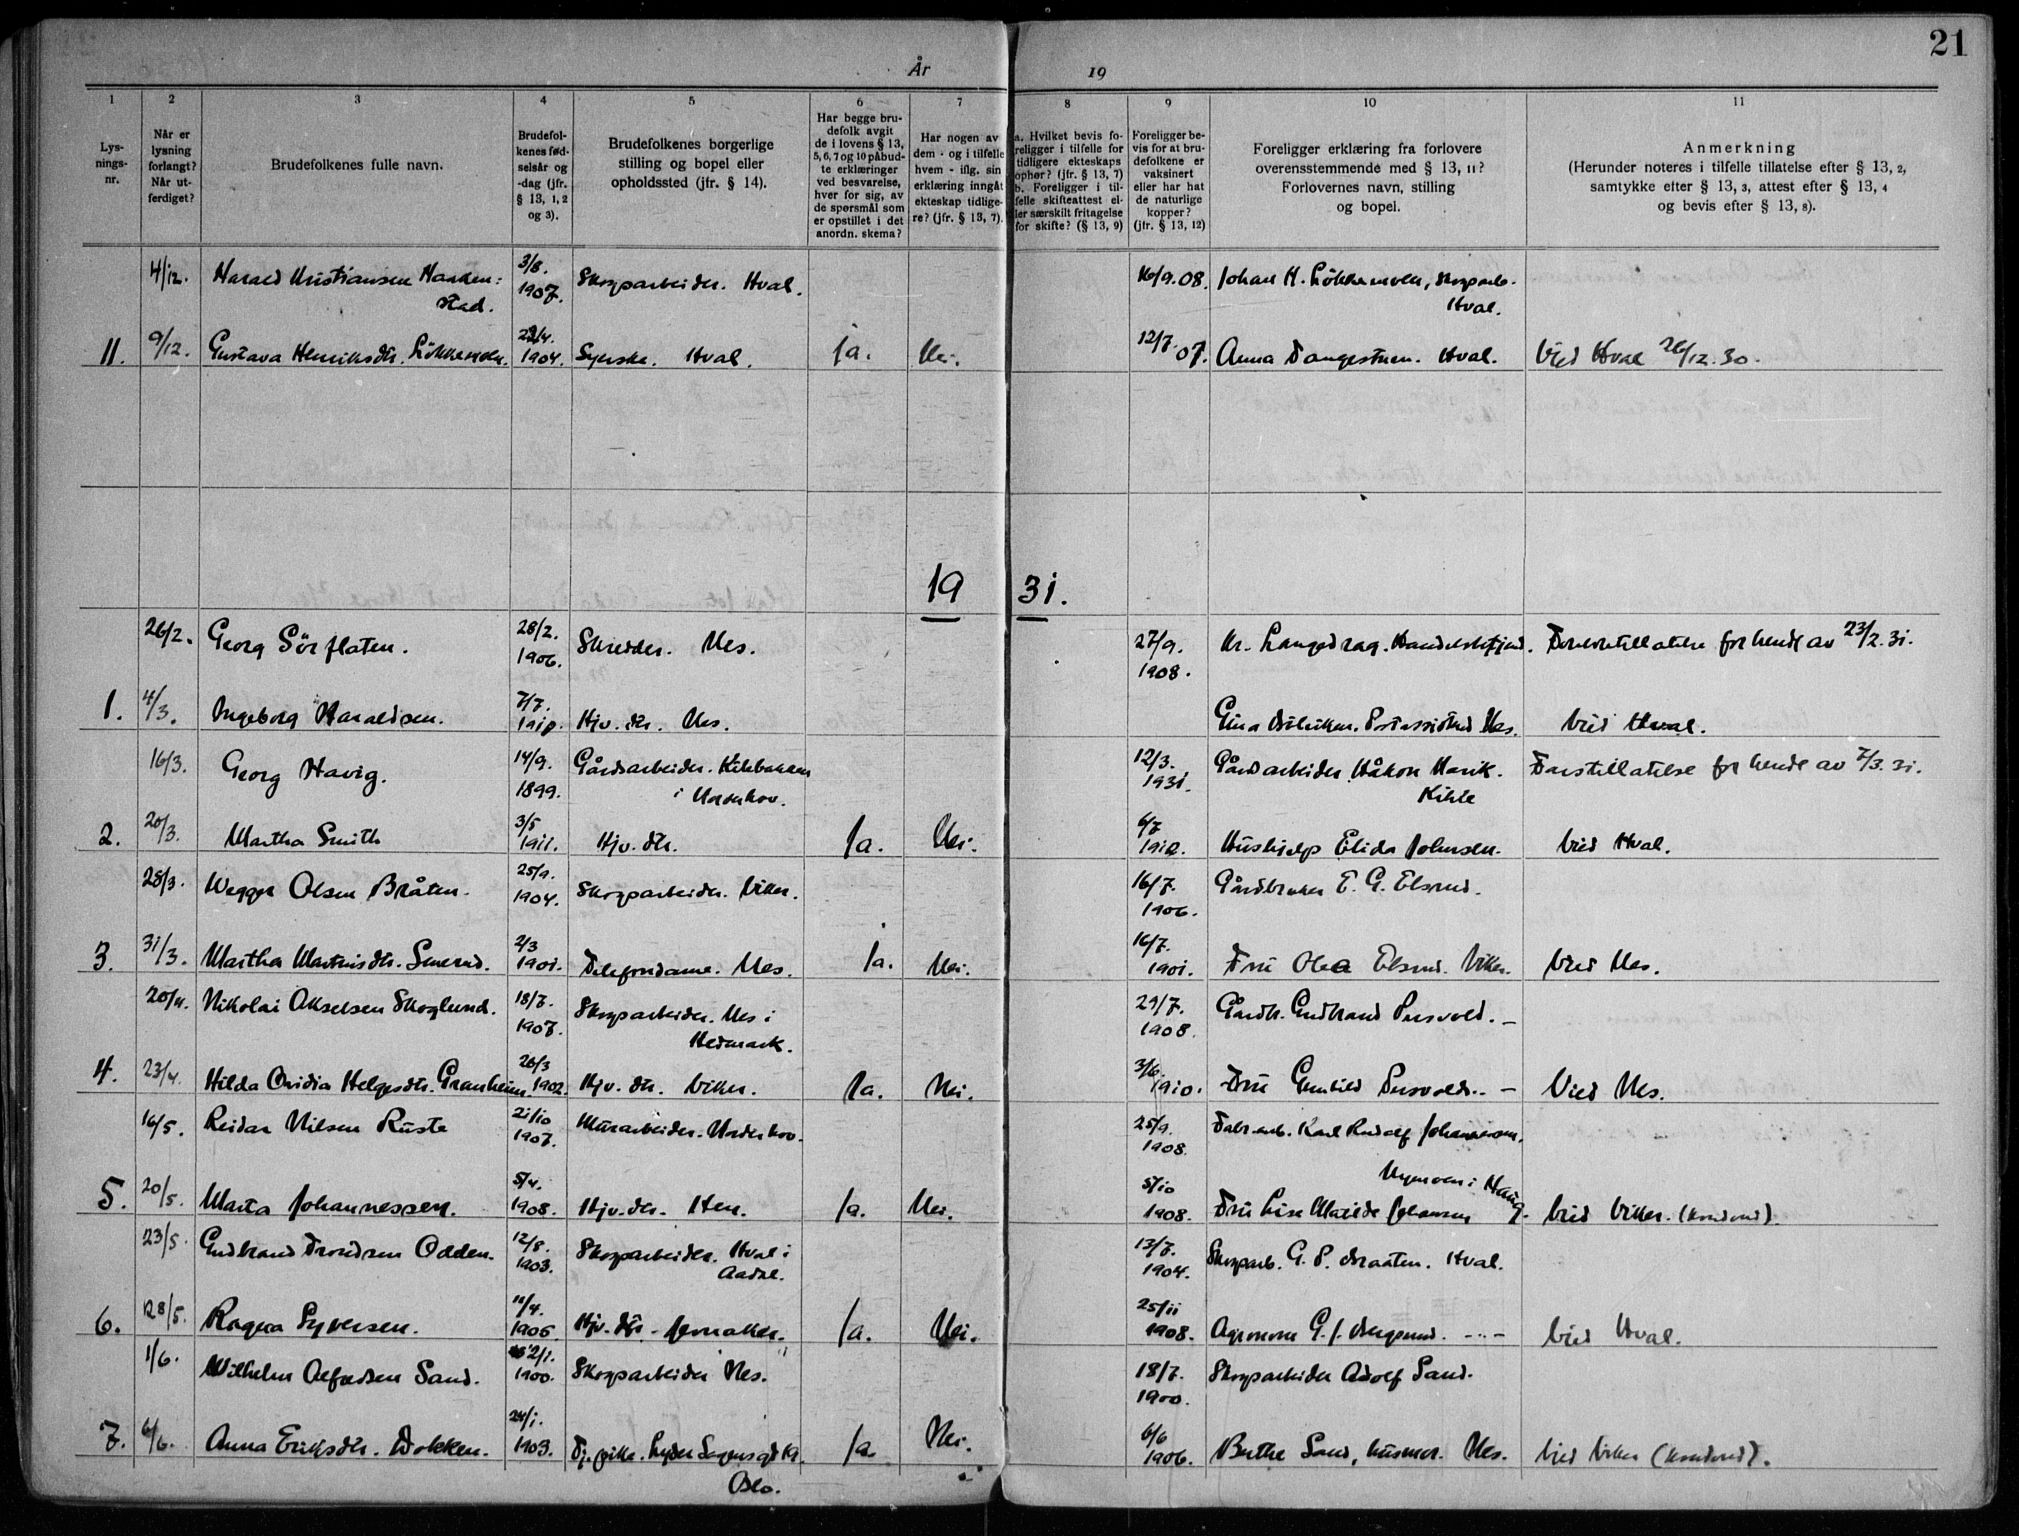 21
År 19
1
Lys-
nings-
nr.
2
Når er
lysning
forlangt?
Når ut-
ferdiget?
3
Brudefolkenes fulle navn.
4
Brudefol-
kenes fød-
selsår og
-dag (jfr.
§ 13, 1, 2
og 3).
5
Brudefolkenes borgerlige
stilling og bopel eller
opholdssted (jfr. § 14).
6
Har begge bru-
defolk avgit
de i lovens § 13,
5, 6, 7 og 10 påbud-
te erklæringer
ved besvarelse,
hver for sig, av
de spørsmål som
er opstillet i det
anordn. skema?
7
Har nogen av
dem - og i tilfelle
hvem - iflg. sin
erklæring inngåt
ekteskap tidlige-
re? (jfr. § 13, 7).
8
a. Hvilket bevis fo-
religger i tilfelle for
tidligere ekteskaps
ophør? (jfr. § 13, 7)
b. Foreligger i til-
felle skifteattest el-
ler særskilt fritagelse
for skifte? (§ 13, 9)
9
Foreligger be-
vis for at bru-
defolkene er
vaksinert
eller har hat
de naturlige
kopper?
(jfr. § 13, 12)
10
Foreligger erklæring fra forlovere
overensstemmende med § 13, 11?
Forlovernes navn, stilling
og bopel.
11
Anmerkning
(Herunder noteres i tilfelle tillatelse efter § 13, 2,
samtykke efter § 13, 3, attest efter § 13, 4
og bevis efter § 13, 8).
4/12. Harald Kristiansen 3/8. 1907. Skogsarbeider. Hval. 16/9.08. Johan H. Løkkemoen, skogsarb.
stad. Hval.
11. 9/12. Gustava Henriksdtr. Løkkemoen. 1904. Syerske. Hval. Ja. Nei. 12/7.07. Anna Hval. Vied Hval 26/12.30.
19 31.
26/2. Georg Sörflaten. 28/2. 1906. Skredder. Nes. 27/9. 1908. Kr. Langedrag. for hende av 23/2.31.
1. 4/3. Ingeborg Haraldsen. 7/7. Hjv. dtr. Nes. Gina Nes. Vied Hval.
16/3. Georg Havig. 14/9. 1899. Gårdsarbeider.
i Norderhov. 12/3. 1931. Gårdarbeider Håkon
Kihle for hende av 7/3.31.
2. 20/3. Martha Smith 3/5 1911. Hjv. dtr. Ja. Nei. 6/7 Hushjelp Elida Johnsen. Vied Hval.
28/3. Wegger Olsen Bråten. 25/9. 1904. Skogsarbeider. Viker. 16/7. 1906. Gårdbruker E. G. Elsrud.
3. 31/3. Martha 2/3 1901. Telefondame. Nes. Ja. Nei. 16/7. 1901. Fru Olea Elsrud. Viker. Vied Nes.
20/4. Nikolai Akselsen Skoglund. 18/7. 1907. Skogsarbeider. Nes i
Hedmark. 29/7. 1908. Gårdbr. Gudbrand -
4. 23/4. Hilda Ovidia Helgesdtr. Granheim. 26/3 1902. Hjv. dtr. Viker. Ja. Nei. 3/6. 1910. Fru Gunhild - Vied Nes.
16/5. Reidar Nilsen Ruste 21/10 1907. Murarbeider. Norderhov. 25/9. 1908. Karl Rudolf Johannesen.
Nymoen i Haug.
5. 20/5. Marta Johannessen. 5/4. 1908. Hjv. dtr. Hen. Ja. Nei. 5/10 1908. Fru Lise Matilde Johansen Vied Viker.
23/5. Gudbrand Trondsen Odden. 12/8. 1903. Skogsarbeider. Hval i
Aadal. 13/7. 1904. Skogsarb. G. P. Braaten. Hval.
6. 28/5. Ragna Syversen. 11/4. 1905. Hjv. dtr. - Jevnaker. Ja. Nei. 25/11 1908. Agronom G. J. Vied Hval.
1/6. Wilhelm Alfredsen Sand. 2/1. 1900. Skogsarbeider Nes. 18/7. 1900. Skogsarbeider Adolf Sand.
7. 6/6. Anna Eriksdtr. Dokken. 24/1. 1909. Tj. pike.
Oslo. Ja. Nei. 6/6 1906. Berthe Sand, husmor. Nes. Vied Viker